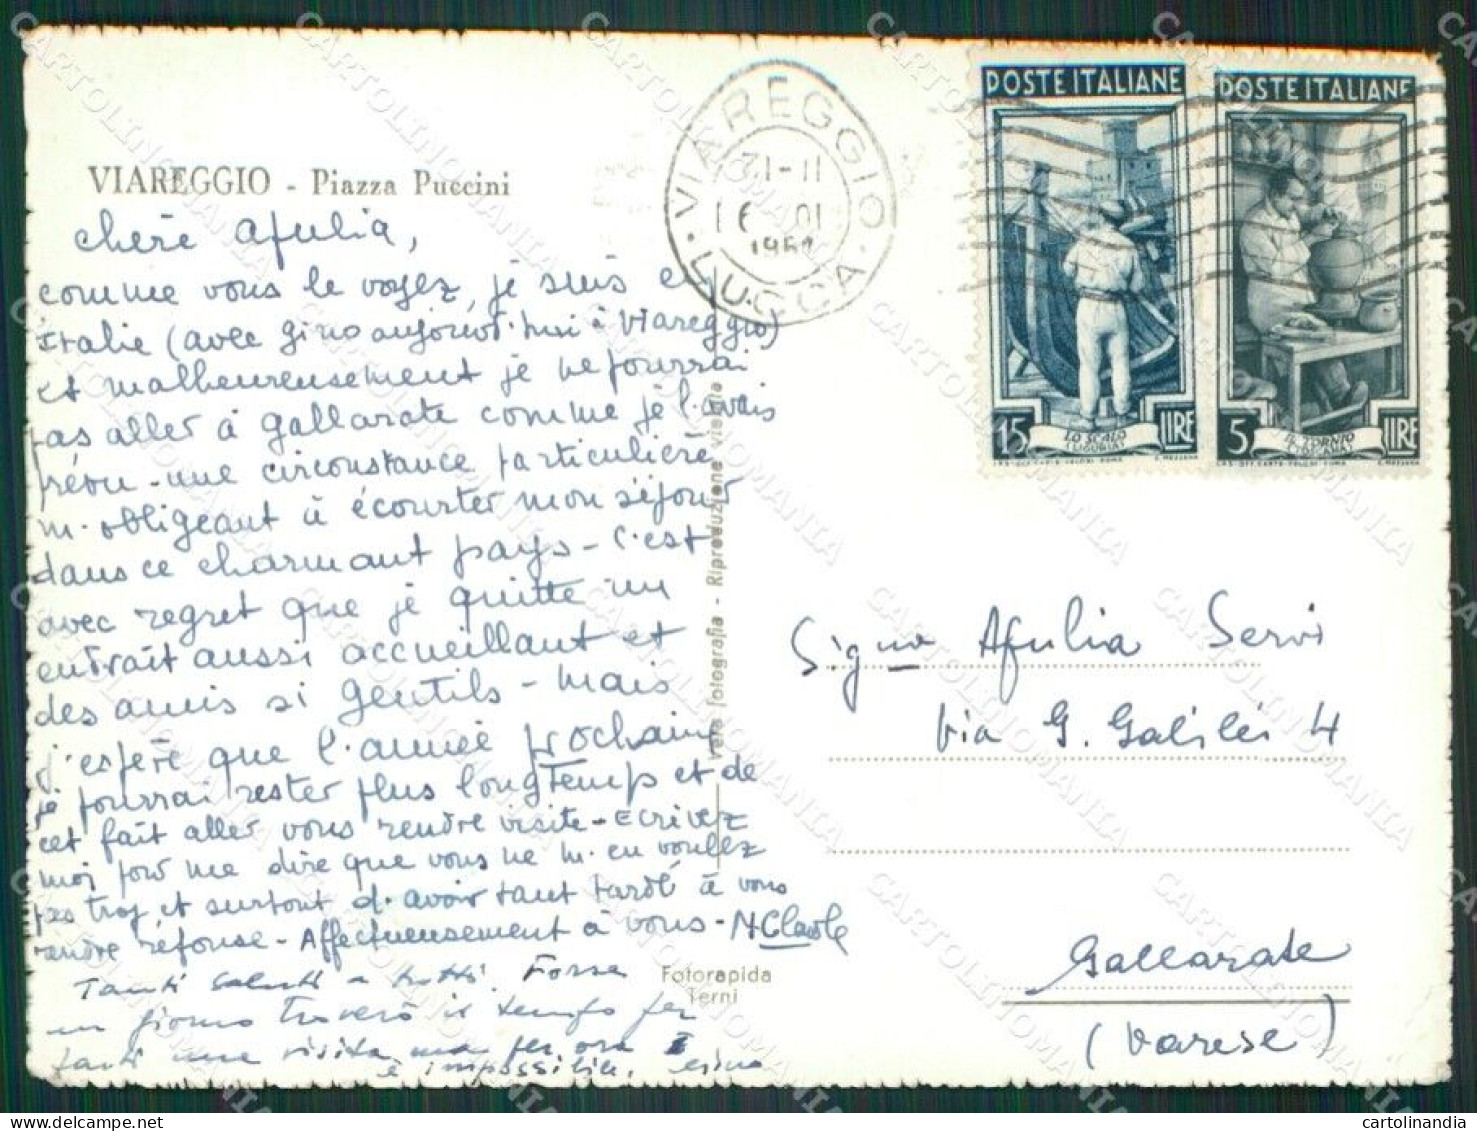 VIAREGGIO - Piazza Puccini
chère Afulia,
comme vous le voyez, je suis en
Italie (avec gino aujourd'hui à Viareggio)
et malheureusement je ne pourrai
pas aller à gallarate comme je l'avais
prévu - une circonstance particulière
m'obligeant à écourter mon séjour
dans ce charmant pays - C'est
avec regret que je quitte un
endroit aussi accueillant et
des amis si gentils - mais
j'espère que l'année prochaine
je pourrai rester plus longtemps et de
cet fait aller vous rendre visite - Ecrivez
moi pour me dire que vous ne m'en voulez
pas trop et surtout d'avoir tant tardé à vous
rendre réponse - Affectueusement à vous -
Tanti saluti a tutti. Forse
un giorno troverò il tempo per
una visita ma per ora
è impossibile.
Fotorapida
Terni
vera fotografia - Riproduzione vietata
VIAREGGIO
31-11
1952
LUCCA
POSTE ITALIANE
15 LIRE
LO SCALO
(LIGURIA)
POSTE ITALIANE
5 LIRE
IL TORNIO
Signa Afulia Servi
Via G. Galilei 4
Gallarate
(Varese)
CARTOLINOMANIA
cartolinandia